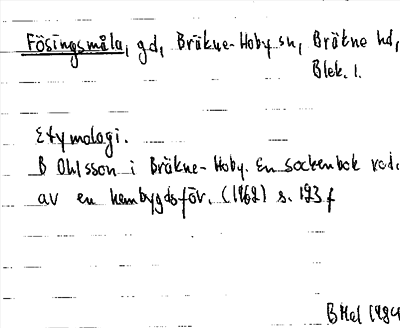 Fösingsmåla, gd, Bräkne-Hoby sn, Bräkne hd,
Blek. l.
Etymologi.
B Ohlsson i Bräkne-Hoby. En sockenbok red.
av en hembygdsför. (1962) s. 193 f
BHel 1984